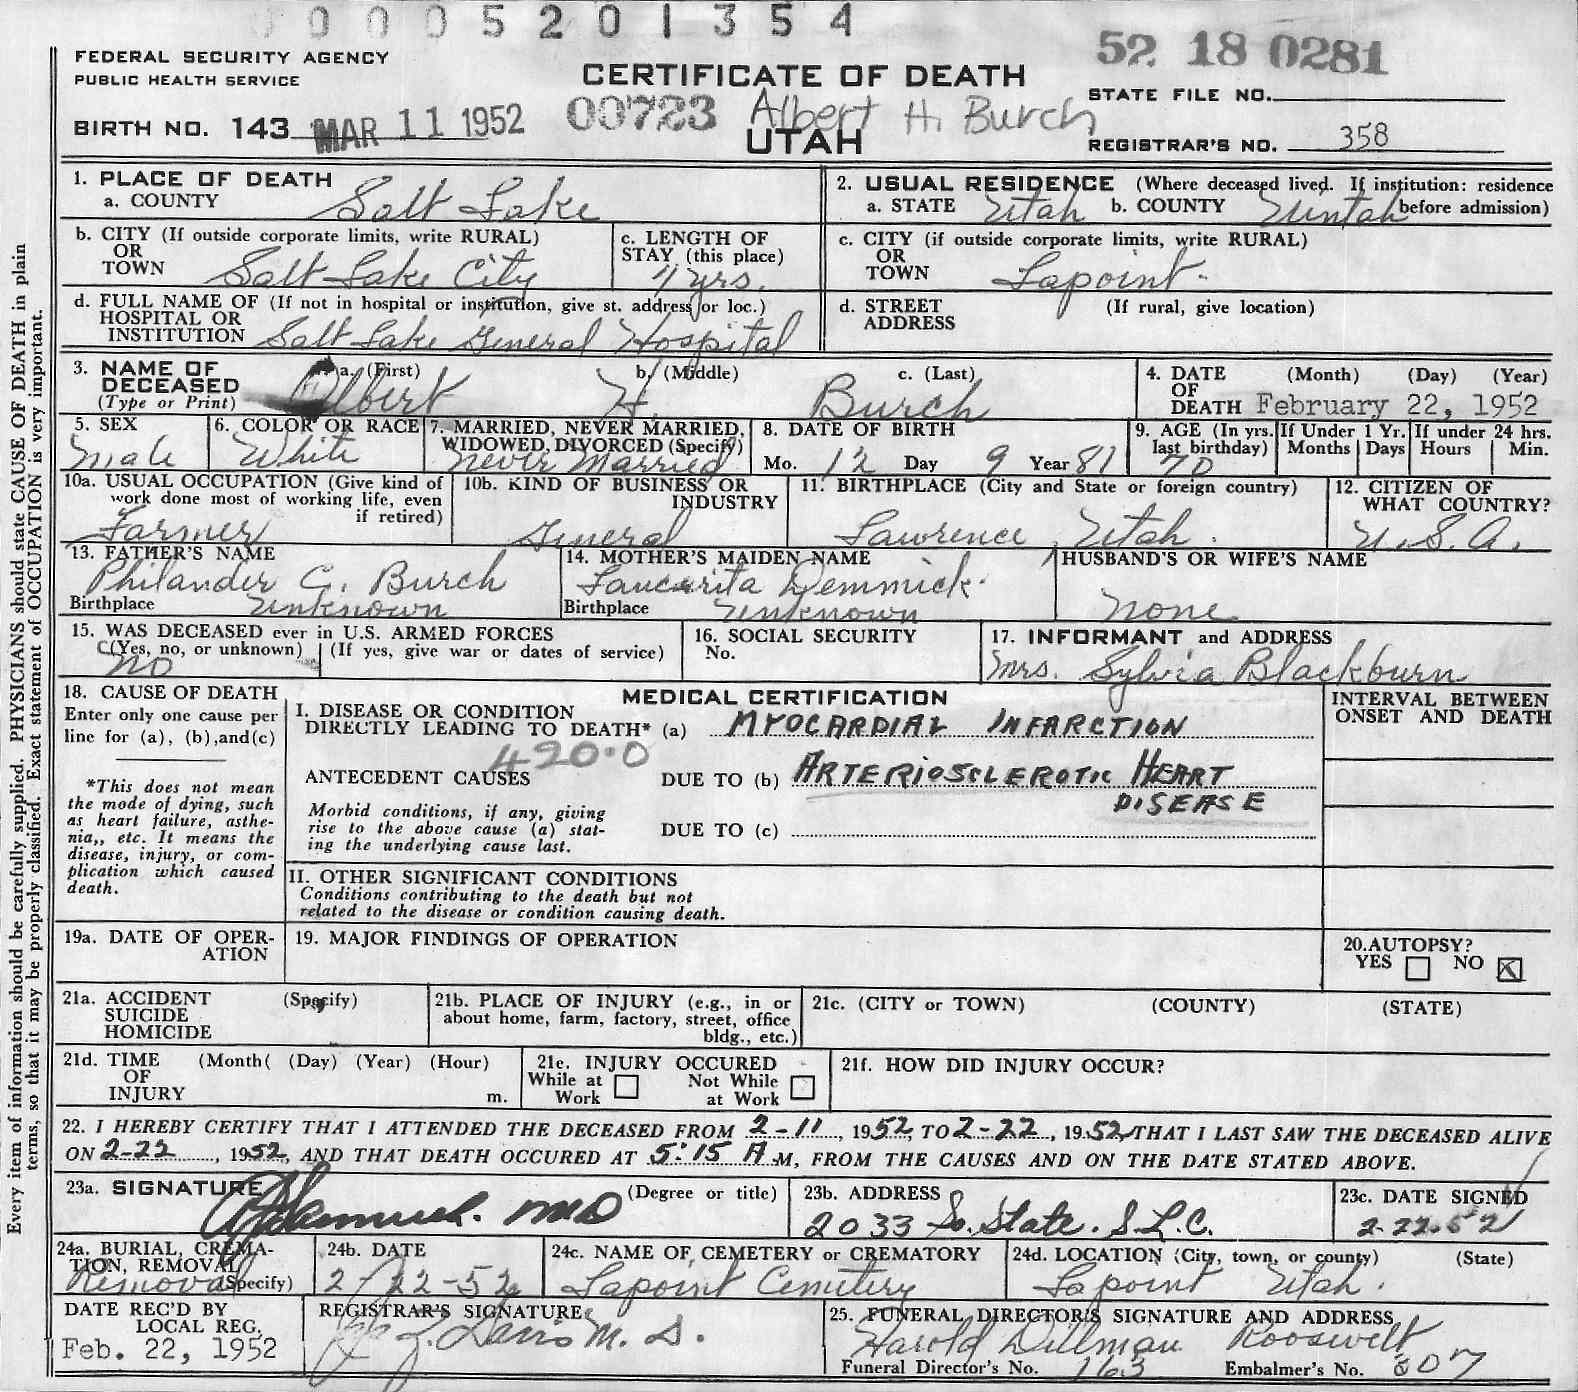 0 0 0 5 2 0 1 3 5 4
FEDERAL SECURITY AGENCY
PUBLIC HEALTH SERVICE
CERTIFICATE OF DEATH
52 18 0281
STATE FILE NO.
BIRTH NO. 143 MAR 11 1952
00723 Albert H. Burch
UTAH
REGISTRAR'S NO. 358
1. PLACE OF DEATH
a. COUNTY Salt Lake
2. USUAL RESIDENCE (Where deceased lived. If institution: residence before admission)
a. STATE Utah b. COUNTY Uintah
b. CITY (If outside corporate limits, write RURAL)
OR
TOWN Salt Lake City
c. LENGTH OF
STAY (this place)
yrs.
c. CITY (if outside corporate limits, write RURAL)
OR
TOWN Lapoint
d. FULL NAME OF (If not in hospital or institution, give st. address or loc.)
HOSPITAL OR
INSTITUTION Salt Lake General Hospital
d. STREET (If rural, give location)
ADDRESS
3. NAME OF DECEASED
(Type or Print)
a. (First) b. (Middle) c. (Last)
Albert H. Burch
4. DATE (Month) (Day) (Year)
OF
DEATH February 22, 1952
5. SEX
Male
6. COLOR OR RACE
White
7. MARRIED, NEVER MARRIED,
WIDOWED, DIVORCED (Specify)
Never Married
8. DATE OF BIRTH
Mo. 12 Day 9 Year 81
9. AGE (In yrs. last birthday)
70
If Under 1 Yr.
Months Days
If under 24 hrs.
Hours Min.
10a. USUAL OCCUPATION (Give kind of
work done most of working life, even
if retired)
Farmer
10b. KIND OF BUSINESS OR
INDUSTRY
General
11. BIRTHPLACE (City and State or foreign country)
Lawrence, Utah.
12. CITIZEN OF
WHAT COUNTRY?
U.S.A.
13. FATHER'S NAME
Philander C. Burch
Birthplace Unknown
14. MOTHER'S MAIDEN NAME
Demmick
Birthplace Unknown
HUSBAND'S OR WIFE'S NAME
None
15. WAS DECEASED ever in U.S. ARMED FORCES
(Yes, no, or unknown) (If yes, give war or dates of service)
No
16. SOCIAL SECURITY
No.
17. INFORMANT and ADDRESS
Mrs. Sylvia Blackburn
18. CAUSE OF DEATH
Enter only one cause per
line for (a), (b), and (c)
*This does not mean
the mode of dying, such
as heart failure, asthe-
nia,, etc. It means the
disease, injury, or com-
plication which caused
death.
MEDICAL CERTIFICATION
I. DISEASE OR CONDITION
DIRECTLY LEADING TO DEATH* (a) MYOCARDIAL INFARCTION
420.0
ANTECEDENT CAUSES DUE TO (b) ARTERIOSCLEROTIC HEART
DISEASE
Morbid conditions, if any, giving
rise to the above cause (a) stat-
ing the underlying cause last.
DUE TO (c)
INTERVAL BETWEEN
ONSET AND DEATH
II. OTHER SIGNIFICANT CONDITIONS
Conditions contributing to the death but not
related to the disease or condition causing death.
19a. DATE OF OPER-
ATION
19. MAJOR FINDINGS OF OPERATION
20. AUTOPSY?
YES NO X
21a. ACCIDENT (Specify)
SUICIDE
HOMICIDE
21b. PLACE OF INJURY (e.g., in or
about home, farm, factory, street, office
bldg., etc.)
21c. (CITY or TOWN) (COUNTY) (STATE)
21d. TIME (Month( (Day) (Year) (Hour)
OF
INJURY m.
21e. INJURY OCCURED
While at Work Not While at Work
21f. HOW DID INJURY OCCUR?
22. I HEREBY CERTIFY THAT I ATTENDED THE DECEASED FROM 2-11, 1952, TO 2-22, 1952, THAT I LAST SAW THE DECEASED ALIVE
ON 2-22, 1952, AND THAT DEATH OCCURED AT 5:15 A M, FROM THE CAUSES AND ON THE DATE STATED ABOVE.
23a. SIGNATURE (Degree or title)
MD
23b. ADDRESS
2033 So. State. S.L.C.
23c. DATE SIGNED
2-22-52
24a. BURIAL, CREMA-
TION, REMOVAL
(Specify)
Removal
24b. DATE
2-22-52
24c. NAME OF CEMETERY or CREMATORY
Lapoint Cemetery
24d. LOCATION (City, town, or county) (State)
Lapoint Utah.
DATE REC'D BY
LOCAL REG.
Feb. 22, 1952
REGISTRAR'S SIGNATURE
M. D.
25. FUNERAL DIRECTOR'S SIGNATURE AND ADDRESS
Harold Dillman Roosevelt
Funeral Director's No. 163 Embalmer's No. 807
Every item of information should be carefully supplied. PHYSICIANS should state CAUSE OF DEATH in plain
terms, so that it may be properly classified. Exact statement of OCCUPATION is very important.